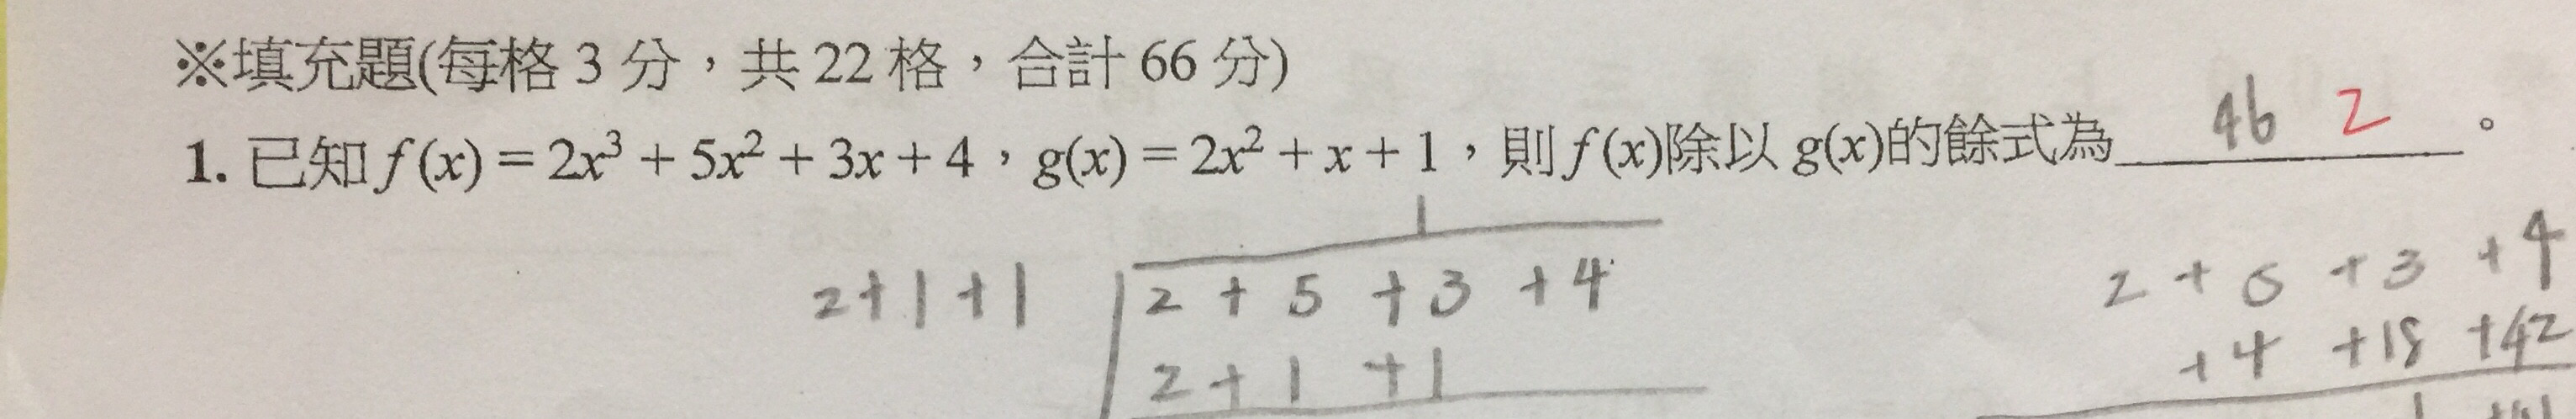 ※填充題(每格 3 分，共 22 格，合計 66 分)
1. 已知 f(x) = 2x³ + 5x² + 3x + 4，g(x) = 2x² + x + 1，則 f(x)除以 g(x)的餘式為 46 2 。
1
2+1+1 2 + 5 + 3 + 4
2 + 1 + 1
2 + 5 + 3 + 4
+4 +18 +42